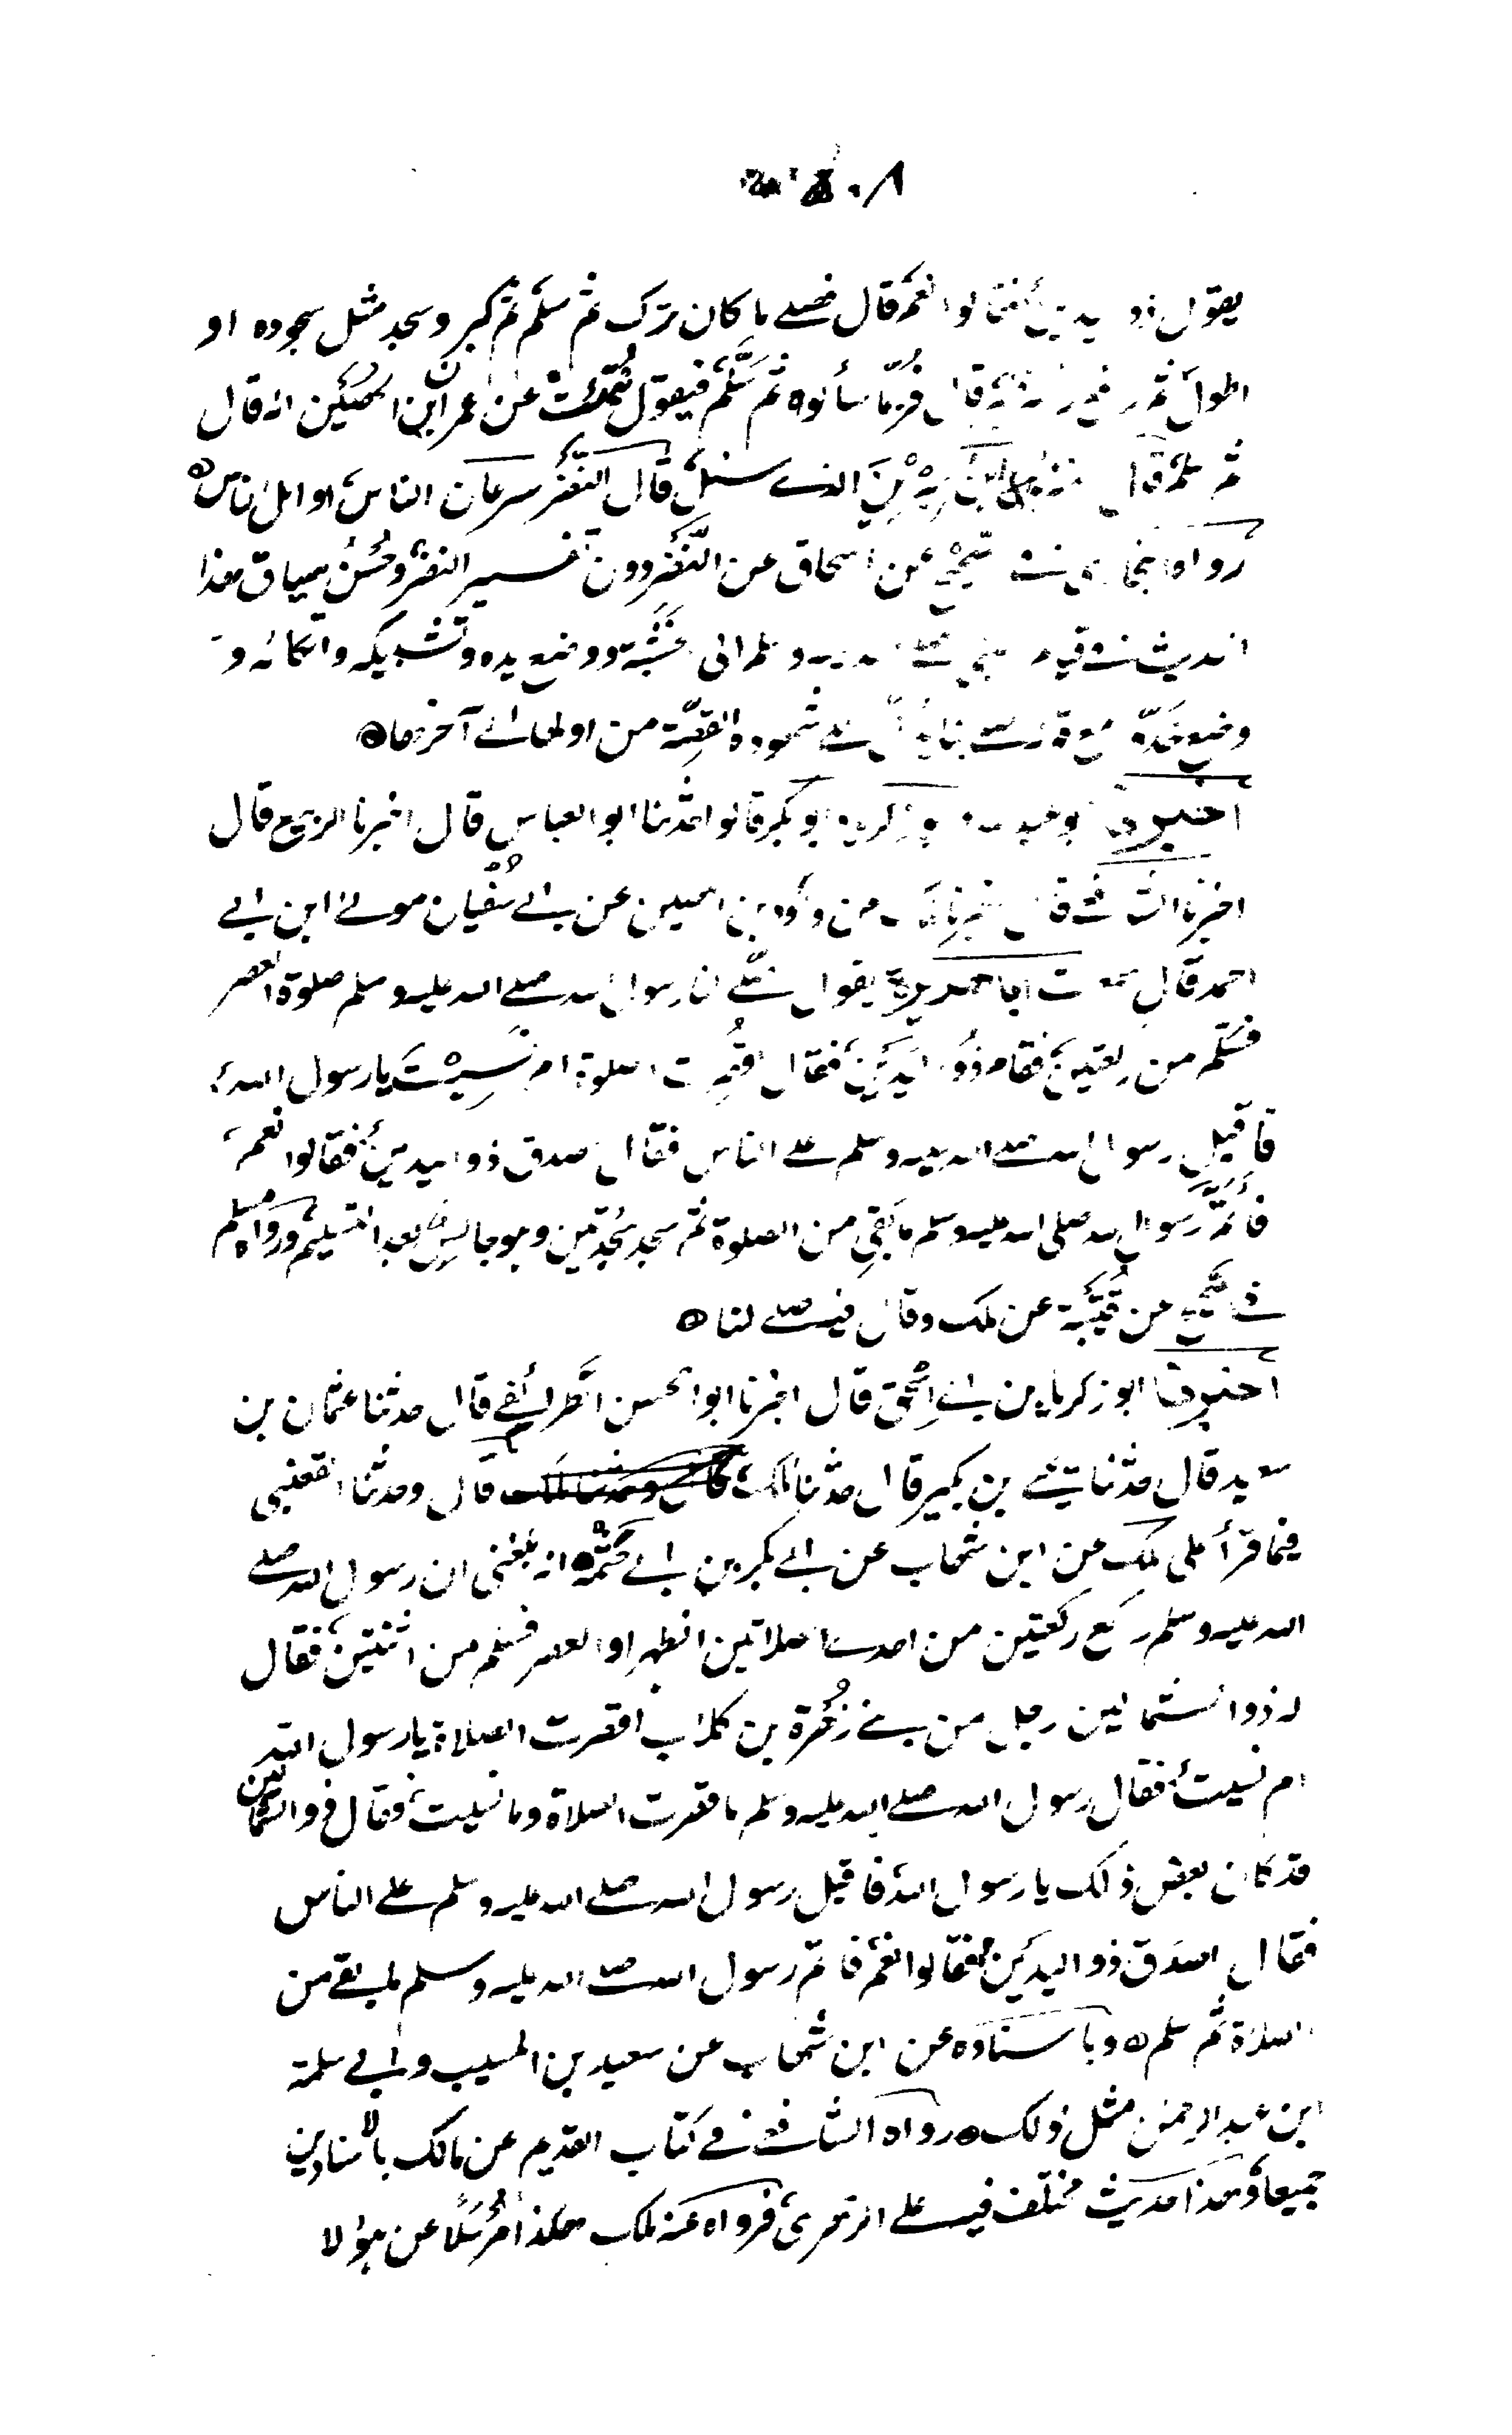 يقول ذو اليدين فقالوا نعم قال فصلى ما كان ترك ثم سلم ثم كبر وسجد مثل سجوده او
اطول ثم رفع رأسه قال فربما سألوه ثم سلم فيقول نبئت عن عمران ابن الحصين انه قال
ثم سلم قال الذي سئل قال النضر سرعان الناس اوائل الناس ه
رواه البخاري في الصحيح عن اسحاق عن النضر دون تفسير النضر وحسن سياق هذا
الحديث في قيام النبي صلى الله عليه وسلم الى خشبة ووضع يده وتشبيكه واتكائه و
وضع خده مع شهوده القصة من اولها الى آخرها ه
اخبرنا ابو عبد الله وابو زكريا وابو بكر قالوا حدثنا ابو العباس قال اخبرنا الربيع قال
اخبرنا الشافعي قال اخبرنا مالك عن داود بن الحصين عن ابي سفيان مولى ابن ابي
احمد قال سمعت ابا هريرة يقول صلى لنا رسول الله صلى الله عليه وسلم صلوة العصر
فسلم من ركعتين فقام ذو اليدين فقال اقصرت الصلوة ام نسيت يا رسول الله
فاقبل رسول الله صلى الله عليه وسلم على الناس فقال اصدق ذو اليدين فقالوا نعم
فأتم رسول الله صلى الله عليه وسلم ما بقي من الصلوة ثم سجد سجدتين وهو جالس بعد التسليم ورواه مسلم
في الصحيح عن قتيبة عن ملك وقال فيه صلى لنا ه
اخبرنا ابو زكريا بن ابي اسحق قال اخبرنا ابو الحسن الطرائفي قال حدثنا عثمان بن
سعيد قال حدثنا يحيى بن بكير قال حدثنا ملك قال وحدثنا ملك قال وحدثنا القعنبي
فيما قرأ على ملك عن ابن شهاب عن ابي بكر بن ابي حثمة انه بلغني ان رسول الله صلى
الله عليه وسلم ركع ركعتين من احدى صلاتين الظهر او العصر فسلم من اثنتين فقال
له ذو الشمالين رجل من بني زهرة بن كلاب اقصرت الصلاة يا رسول الله
ام نسيت فقال رسول الله صلى الله عليه وسلم ما قصرت الصلاة وما نسيت فقال ذو الشمالين
قد كان بعض ذلك يا رسول الله فاقبل رسول الله صلى الله عليه وسلم على الناس
فقال اصدق ذو اليدين فقالوا نعم فاتم رسول الله صلى الله عليه وسلم ما بقي من
الصلاة ثم سلم ه وباسناده عن ابن شهاب عن سعيد بن المسيب وابي سلمة
ابن عبد الرحمن مثل ذلك ه رواه الشافعي في كتاب القديم عن مالك بالاسنادين
جميعا وهذا حديث مختلف فيه على الزهري فرواه عنه ملك هكذا مرسلا عن هؤلا